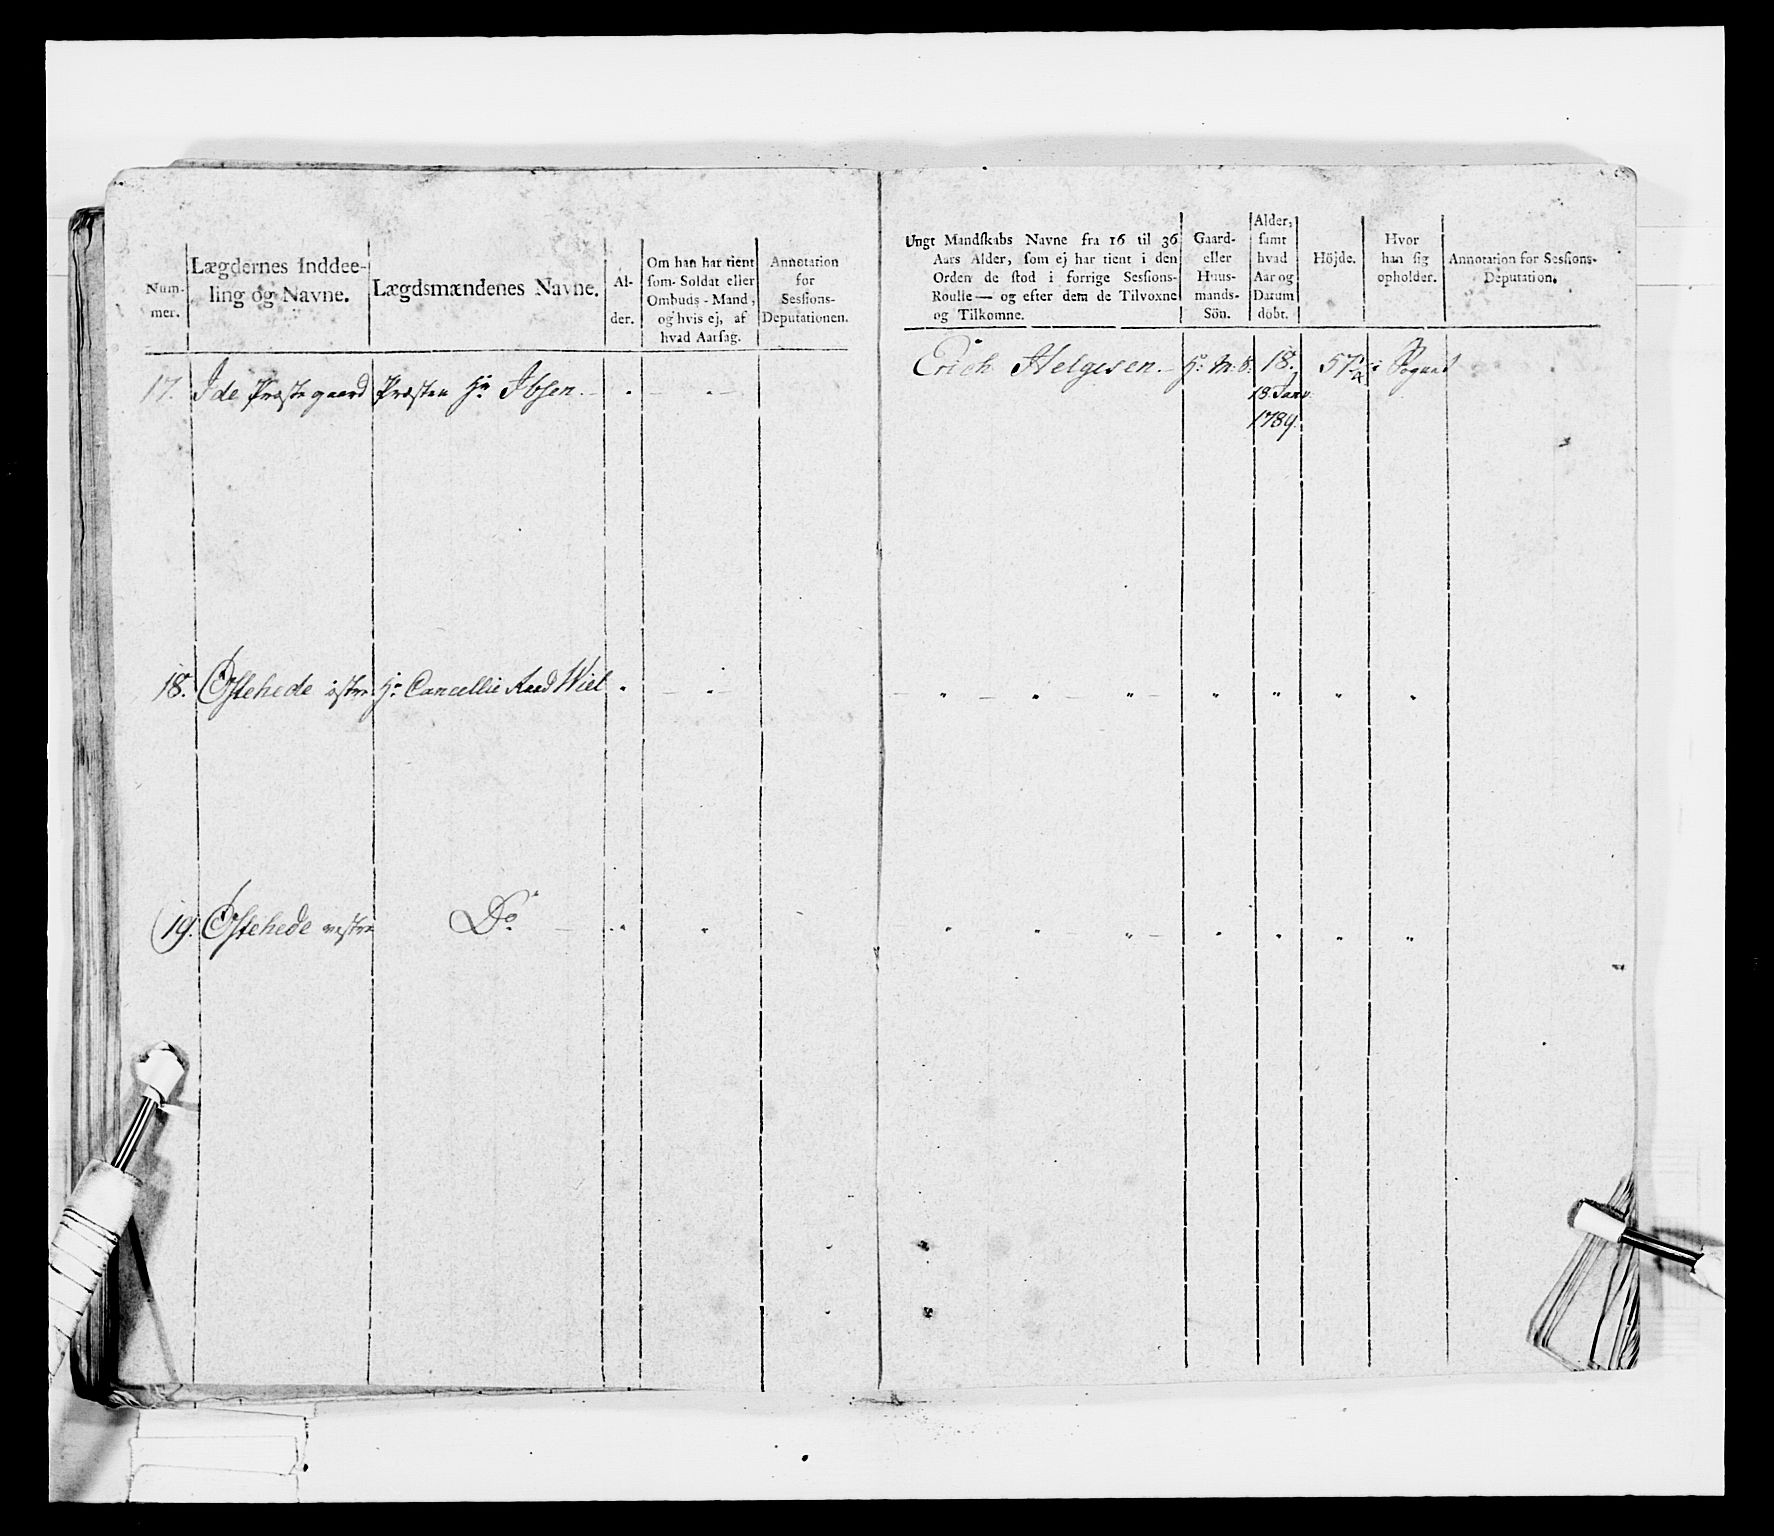 Num-
mer.
Lægdernes Inddee-
ling og Navne.
Lægdsmændenes Navne.
Al-
der.
Om han har tient
som Soldat eller
Ombuds-Mand,
og hvis ej, af
hvad Aarsag.
Annotation
for
Sessions-
Deputationen.
17. Ide Præstegaard Præsten Hr Ibsen. - " - " -
18. Ostehede østre Hr Cancellie Raad Wiel " - " -
19. Ostehede vestre Do. - " "
Ungt Mandskabs Navne fra 16 til 36
Aars Alder, som ej har tient i den
Orden de stod i forrige Sessions-
Roulle — og efter dem de Tilvoxne
og Tilkomne.
Gaard-
eller
Huus-
mands-
Sön.
Alder,
samt
hvad
Aar og
Datum
döbt.
Höjde.
Hvor
han sig
opholder.
Annotation for Sessions-
Deputation.
Erich Helgesen. - H: M: S. 18. 57 1/2 i Sognet
18 Janv.
1789.
" - " " - " " " "
" " " - " " " "